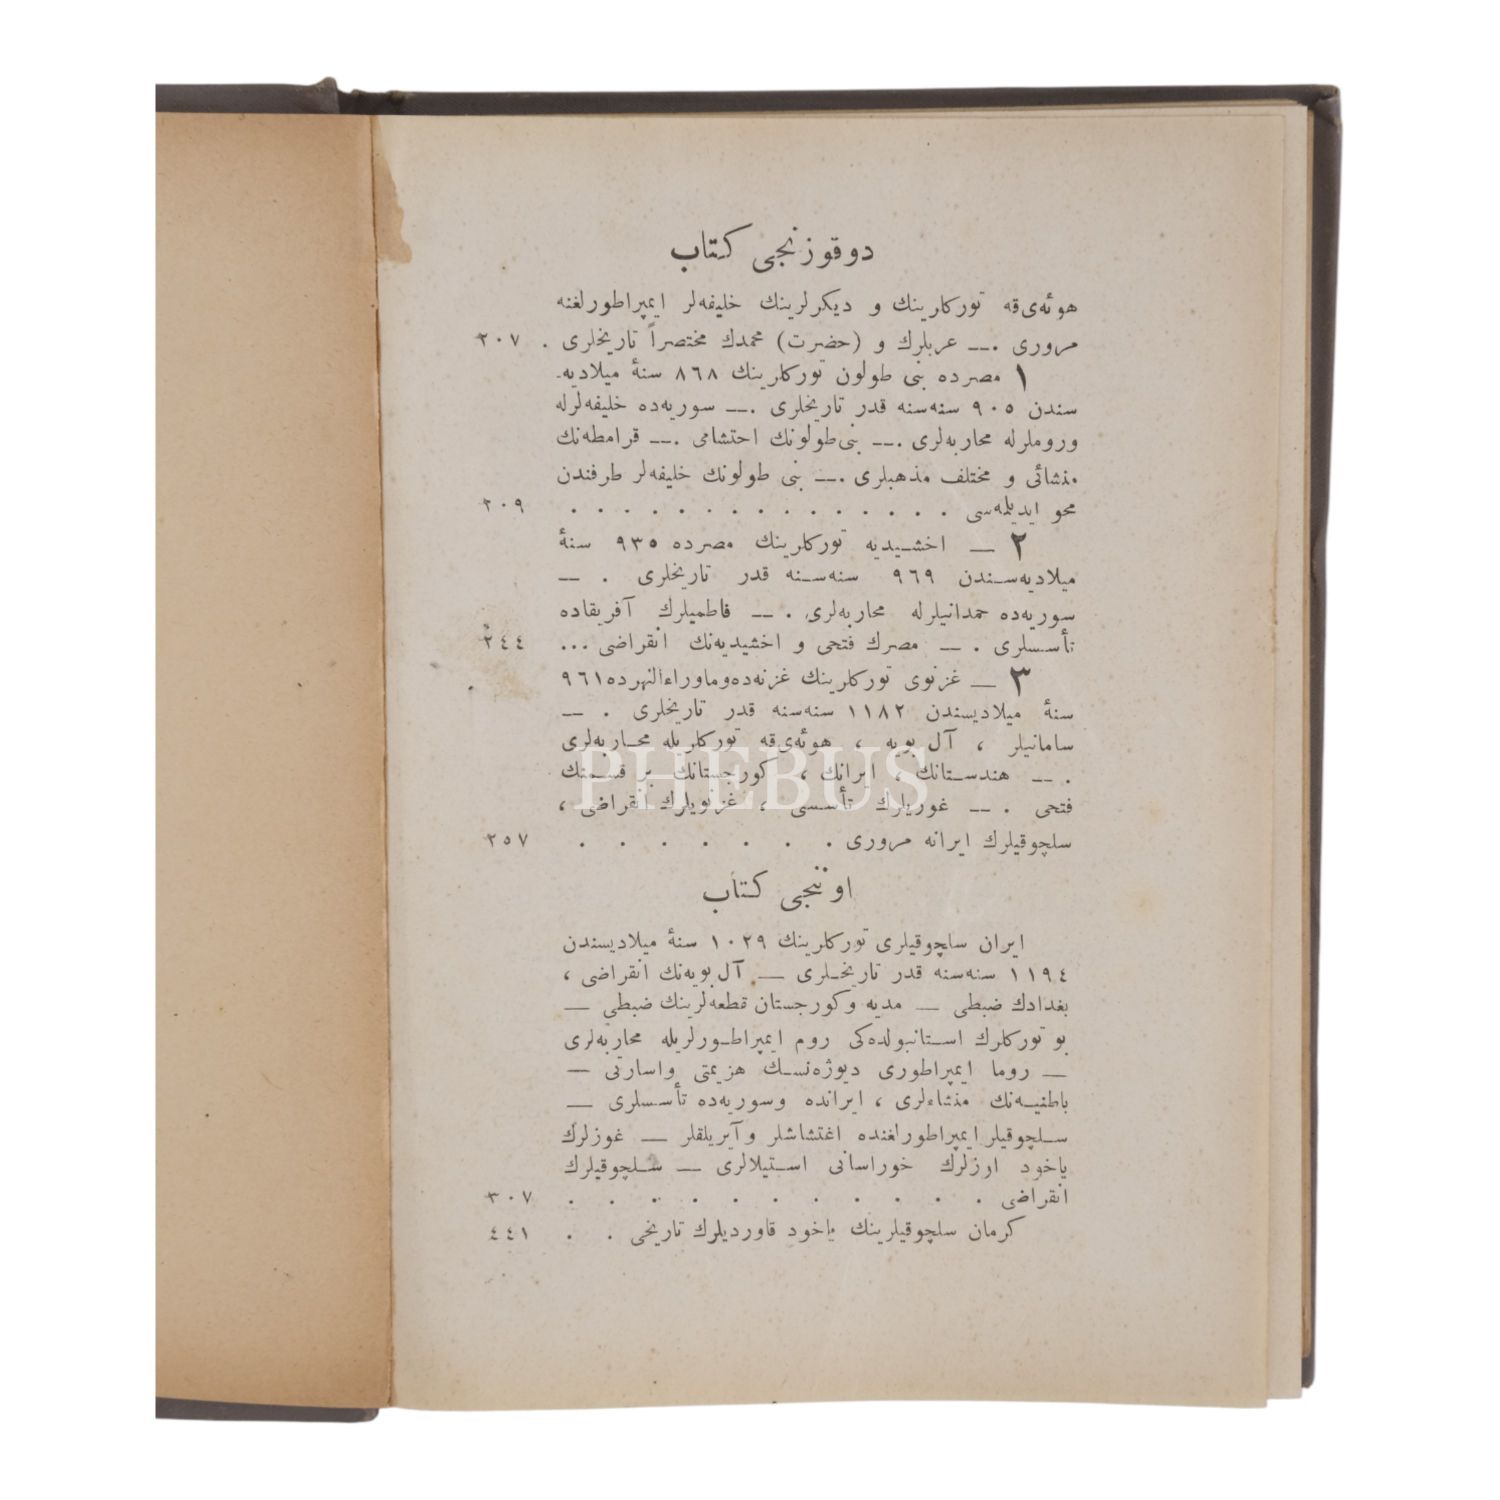 دوقوزنجی كتاب
هوئه‌ی‌قه توركلرينك و ديكرلرينك خليفه‌لر ايمپراطورلغنه
مروری .— عربلرك و (حضرت) محمدك مختصراً تاريخلری . ٢٠٧
١ مصرده بنی طولون توركلرينك ٨٦٨ سنهٔ ميلاديه‌
سندن ٩٠٥ سنه‌سنه قدر تاريخلری .— سوريه‌ده خليفه‌لرله
وروملرله محاربه‌لری .— بنی‌طولونك احتشامی .— قرامطه‌نك
منشائی و مختلف مذهبلری .— بنی طولونك خليفه‌لر طرفندن
محو ايديلمه‌سی . . . . . . . . . . . . . . . ٢٠٩
٢ — اخشيديه توركلرينك مصرده ٩٣٥ سنهٔ
ميلاديه‌سندن ٩٦٩ سنه‌سنه قدر تاريخلری . —
سوريه‌ده حمدانيلرله محاربه‌لری . — فاطميلرك آفريقاده
تأسسلری . — مصرك فتحی و اخشيديه‌نك انقراضی ... ٢٤٤
٣ — غزنوی توركلرينك غزنه‌ده‌وماوراءالنهرده ٩٦١
سنهٔ ميلاديسندن ١١٨٢ سنه‌سنه قدر تاريخلری . —
سامانيلر ، آل بويه ، هوئه‌ی‌قه توركلريله محاربه‌لری
. — هندستانك ، ايرانك ، كورجستانك بر قسمنك
فتحی . — غوريلرك تأسسی ، غزنويلرك انقراضی ،
سلچوقيلرك ايرانه مروری . . . . . . . ٢٥٧
اوننجی كتاب
ايران سلچوقيلری توركلرينك ١٠٢٩ سنهٔ ميلاديسندن
١١٩٤ سنه‌سنه قدر تاريخلری — آل بويه‌نك انقراضی ،
بغدادك ضبطی — مديه وكورجستان قطعه‌لرينك ضبطی —
بو توركلرك استانبولده‌كی روم ايمپراطورلريله محاربه‌لری
— روما ايمپراطوری ديوژه‌نسك هزيمتی واسارتی —
باطنيه‌نك منشاءلری ، ايرانده وسوريه‌ده تأسسلری —
سلچوقيلر ايمپراطورلغنده اغتشاشلر وآيريلقلر — غوزلرك
ياخود ارزلرك خوراسانی استيلالری — سلچوقيلرك
انقراضی . . . . . . . . . . . ٣٠٧
كرمان سلچوقيلرينك ياخود قاورديلرك تاريخی . . ٤٤١
PHEBUS